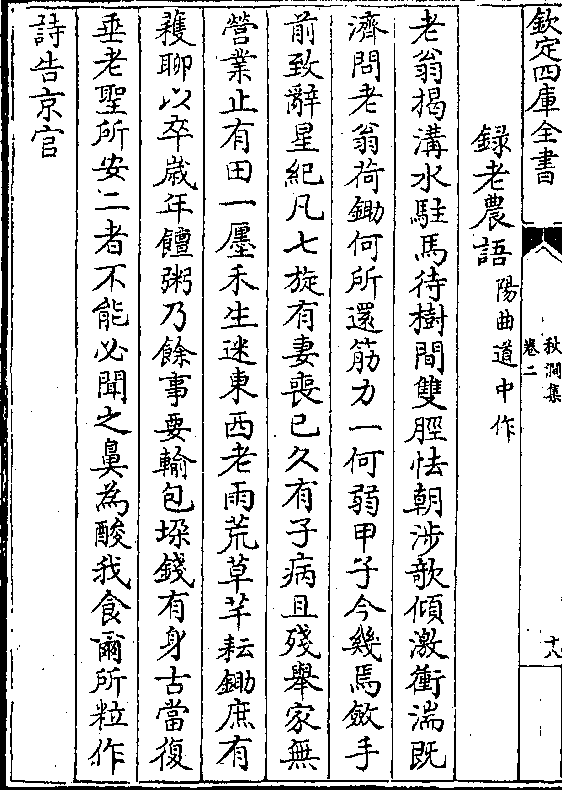 欽定四庫全書
秋澗集
卷二
十八
録老農語陽曲道中作
老翁揭溝水駐馬待樹間雙脛怯朝涉欹傾激衝湍既
濟問老翁荷鋤何所還筋力一何弱甲子今幾焉斂手
前致辭星紀凡七旋有妻喪已久有子病且殘舉家無
營業止有田一廛禾生迷東西老雨荒草芊耘鋤庶有
穫聊以卒歲年饘粥乃餘事要輸包垜錢有身古當復
垂老聖所安二者不能必聞之鼻為酸我食爾所粒作
詩告京官